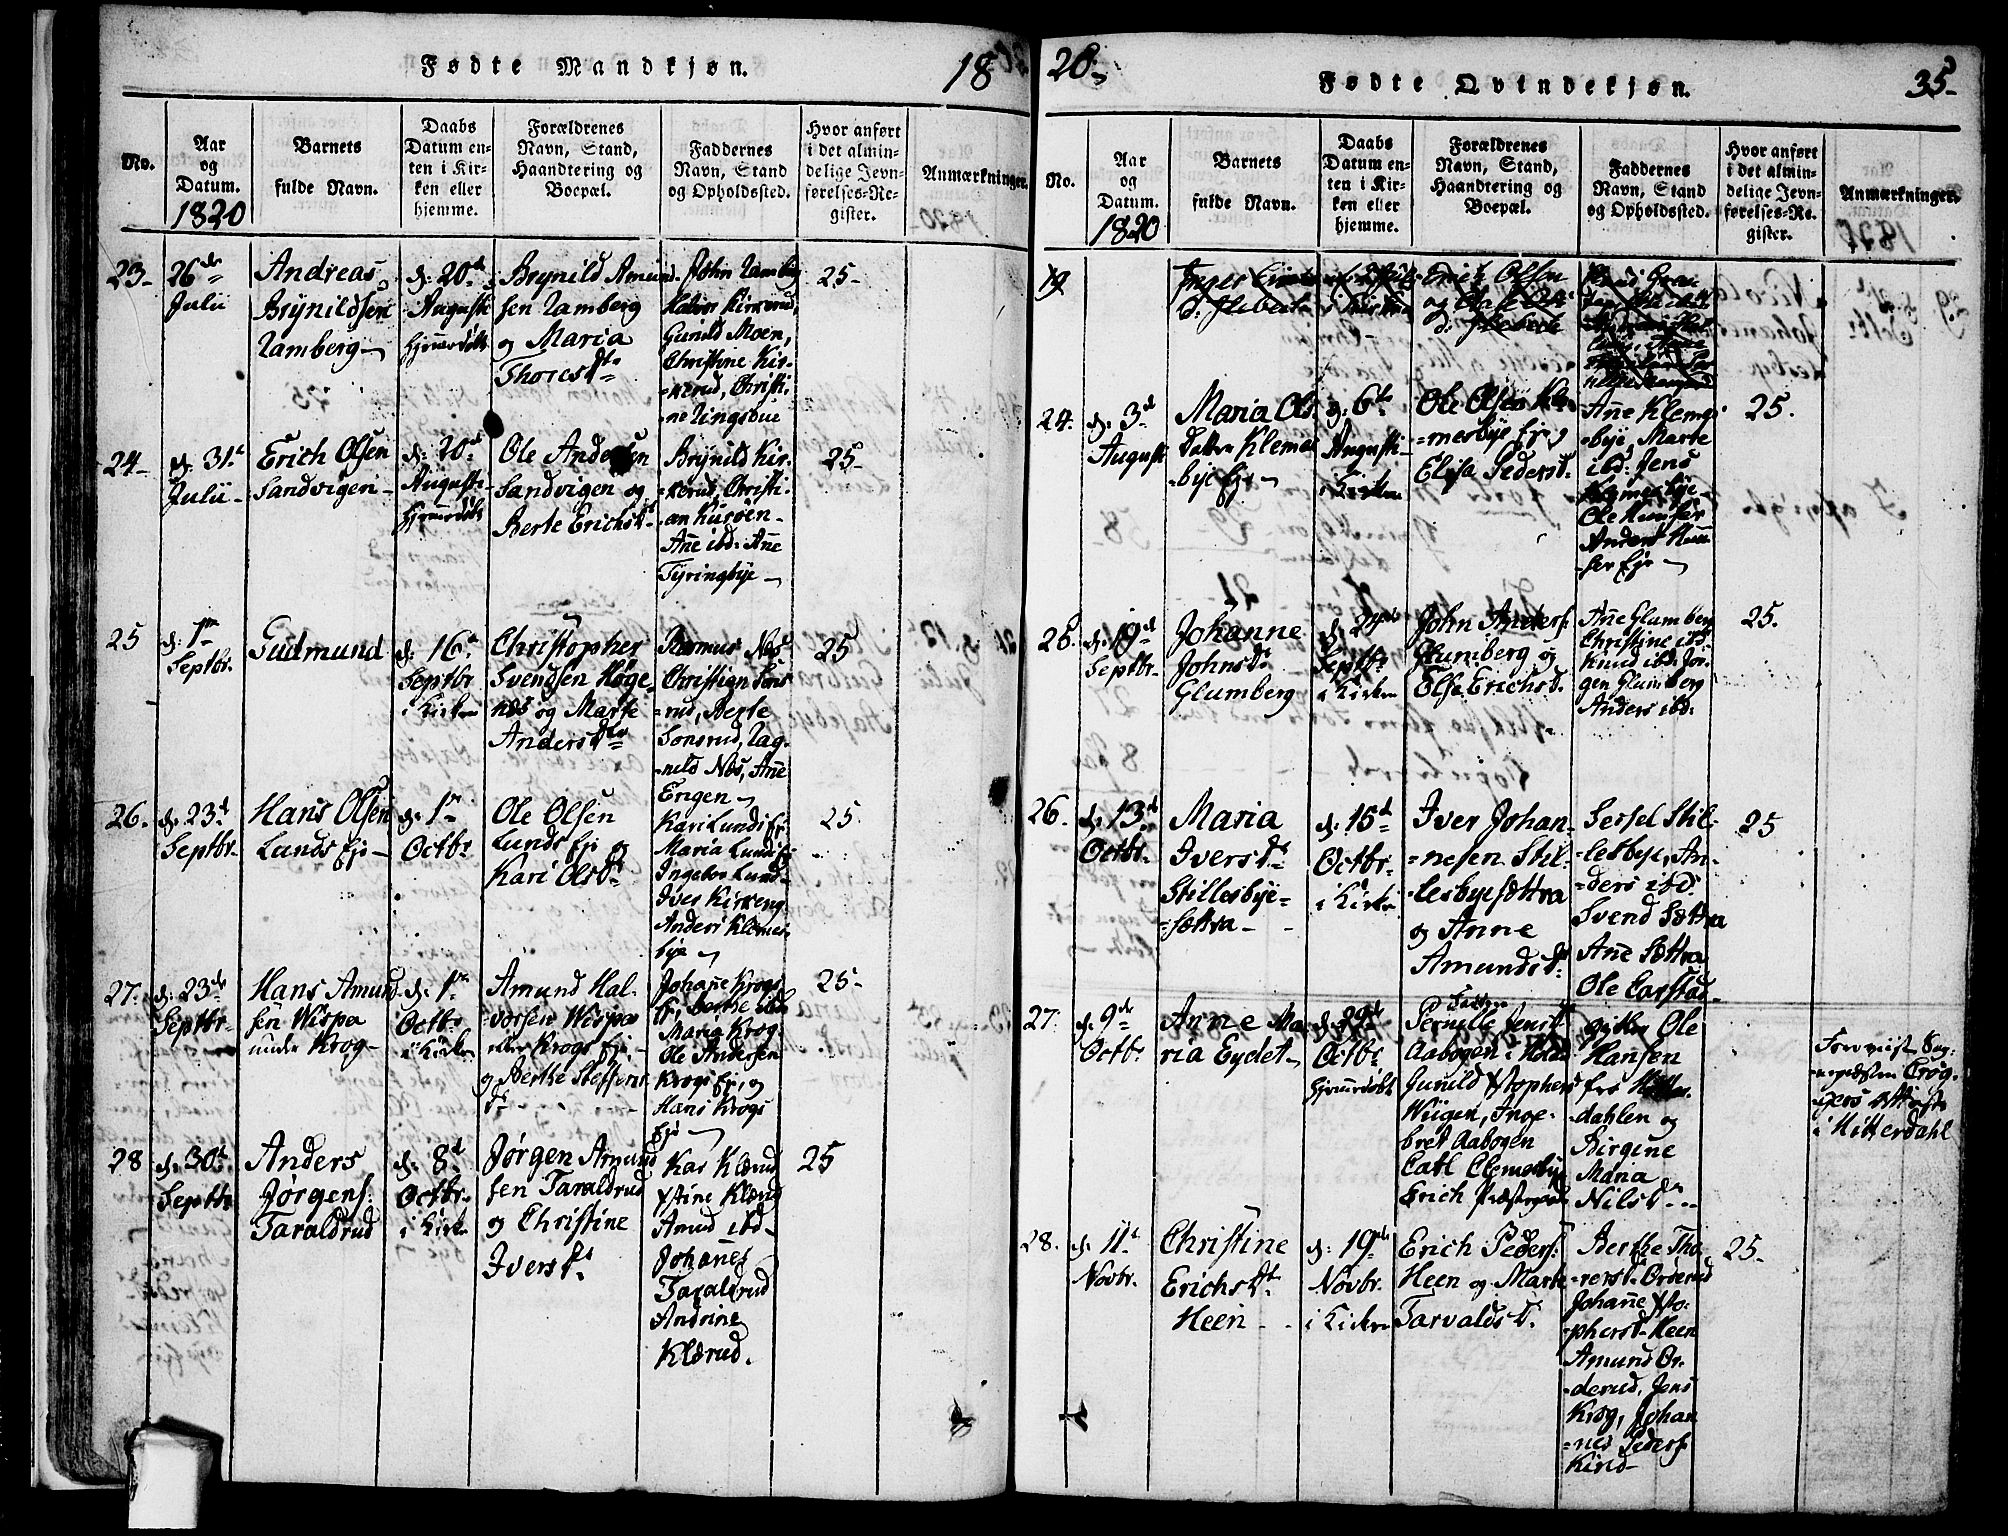 Fødte Mandkjøn.
18
No.
Aar
og
Datum.
1820
Barnets
fulde Navn.
Daabs
Datum en-
ten i Kir-
ken eller
hjemme.
Forældrenes
Navn, Stand,
Haandtering og
Boepæl.
Faddernes
Navn, Stand
og Opholdssted.
Hvor anført
i det almin-
delige Jevn-
førelses-Re-
gister.
Anmærkninger.
23-
26de
Julii
Andreas
Brynildsen
Ramberg
d: 20d
Augusti
Hjemmedøbt
Brynild Amund-
sen Ramberg
og Maria
Thoresdt
John Ramberg
Halvor Kirkerud,
Gunild Moen,
Christine Kir-
kerud, Christi-
ne Ringsbye
25-
24-
d: 31t
Julii-
Erich Olsen
Sandvigen-
d: 20d
Augusti-
Hjemmedøbt
Ole Andersen
Sandvigen og
Berte Erichsdt
Brynild Kir-
kerud, Christi-
an Kusven-
Añe ibd: Añe
Tyringbye
25-
25
d: 1m
Septbr.
Gudmund
d: 16d
Septbr
i Kirken
Christopher
Svendsen Høge-
næs og Marte
Andersdtr
Rasmus Næs
Christian Søns-
rud, Berte
Sønsrud, Rag-
nild Næs, Añe
Engen
25
26.
d: 23d
Septbr.
Hans Olsen
Lunds Eje
d: 1m
Octbr.
Ole Olsen
Lunds Eje og
Kari Olsdt
Kari Lunds Ej-
Maria Lunds Ej
Ingebor Lund-
Iver Kirkeng
Anders Klemes-
bye
25
27.
d: 23de
Septbr-
Hans Amund-
sen Wispa
under Krog-
d: 1m
Octbr.
i Kirken
Amund Hal-
vorsen Wispa
eller Krogs Eje-
og Berthe Steffens
dt
Johañe Krogs
Ej, Berthe ibd
Maria Krog
Ole Andersen
Krogs Ej, og
Hans Krogs
Eje
25-
28
d: 30t
Septbr
Anders
Jørgens:
Taraldrud
d: 8d
Octbr.
i Kirken
Jørgen Amund
sen Taraldrud
og Christine
Iversdt
Kari Klærud
Xstine Klærud
Amud ibd-
Johañes
Taraldrud
Andrine
Klærud.
25
20-
Fødte Qvindekjøn.
35-
No.
Aar
og
Datum.
1820
Barnets
fulde Navn.
Daabs
Datum en-
ten i Kir-
ken eller
hjemme.
Forældrenes
Navn, Stand,
Haandtering og
Boepæl.
Faddernes
Navn, Stand
og Opholdssted.
Hvor anført
i det almin-
delige Jevn-
førelses-Re-
gister.
Anmærkninger.
Inger
Erich Olsen
24.
d: 3d
August
Maria Ols
Datter Klemes
bye Eje
d: 6te
Augusti-
i Kirken
Ole Olsen Kle-
mesbye Ej og
Elisa Pedersdt.
Añe Klemes-
bye, Marte
ibd: Jens
Klemesbye
Ole Hunser
Anders Hun-
ser Eje
25.
25.
d: 19d
Septbr.
Johanne
Johnsdt
Glumberg
d: 24de
Septbr
i Kirken
John Anders:
Glumberg og
Else Erichsdt.
Añe Glumberg
Christine ibd:
Knud ibd: Jør-
gen Glumberg
Anders ibd:
25.
26.
d: 13d
Octbr.
Maria
Iversdt
Stillesbye-
Sættra-
d: 15d
Octbr.
i Kirken
Iver Johan-
nesen Stil-
lesbyesættra
og Anne
Amundsdt
Sersel Stil-
lesbye, An-
ders ibd:
Svend Sættra
Añe Sættra
Ole Carstad
25
27.
d: 9de
Octbr.
Anne Ma-
ria Eydet
d: 29de
Octbr.
Hjemmedøbt
Faddere
Pernille Jensdt
Aabogen i
Gunild Xstophers
Wiigen, Inge-
bret Aabogen
Carl Clemesbye
Erich Præstegaard
Ole
Hansen
fra Hitter-
dahlen og
Birgine
Maria
Nilsdt
i Hitterdahl
28.
d: 11t
Novbr.
Christine
Erichsdt.
Heen
d: 19de
Novbr.
i Kirken
Erich Peders:
Heen og Marte
Tarvaldsdt.
Berthe Tho-
rersdt Orderud
Johañe Xsto-
phersdt Heen
Amund Or-
derud, Jens
Krog, Johan
nes Peders
Kind-
25-